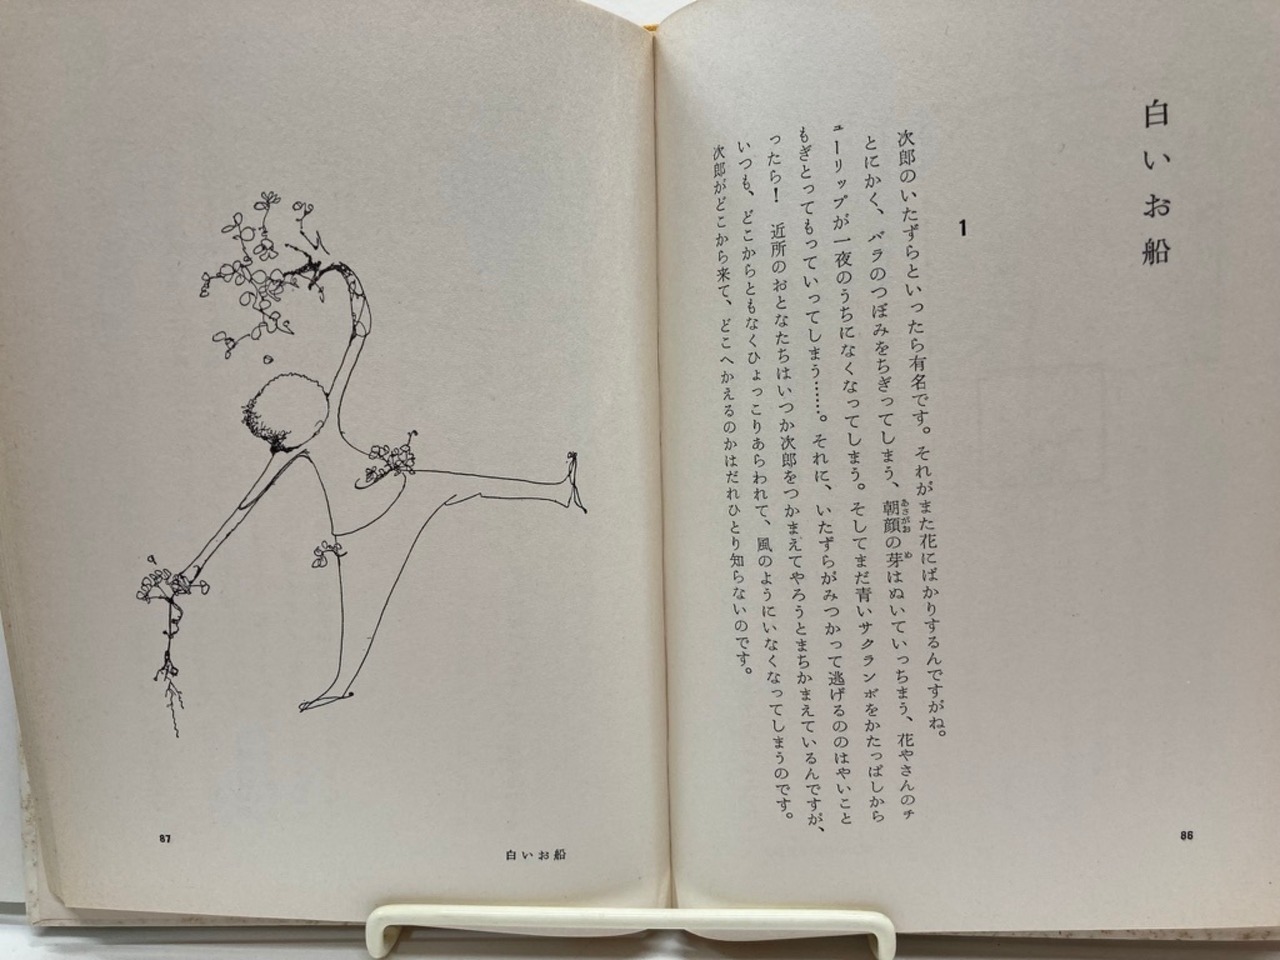 白いお船
1
次郎のいたずらといったら有名です。それがまた花にばかりするんですがね。
とにかく、バラのつぼみをちぎってしまう、朝顔の芽はぬいていっちまう、花やさんのチ
ューリップが一夜のうちになくなってしまう。そしてまだ青いサクランボをかたっぱしから
もぎとってもっていってしまう……。それに、いたずらがみつかって逃げるののはやいこと
ったら！　近所のおとなたちはいつか次郎をつかまえてやろうとまちかまえているんですが、
いつも、どこからともなくひょっこりあらわれて、風のようにいなくなってしまうのです。
次郎がどこから来て、どこへかえるのかはだれひとり知らないのです。
86
白いお船
87